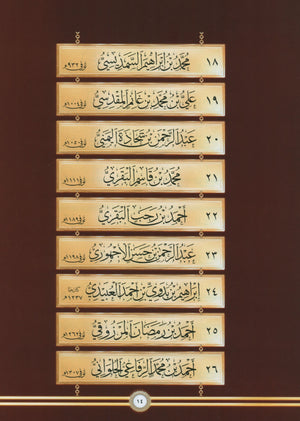 ١٨ محمد بن إبراهيم السمديسي ت ٩٣٢هـ
١٩ علي بن محمد بن غانم المقدسي ت ١٠٠٤هـ
٢٠ عبد الرحمن بن شحاذة اليمني ت ١٠٥٠هـ
٢١ محمد بن قاسم البقري ت ١١١١هـ
٢٢ أحمد بن رجب البقري ت ١١٨٩هـ
٢٣ عبد الرحمن بن حسن الأجهوري ت ١١٩٨هـ
٢٤ إبراهيم بن بدوي بن أحمد العبيدي ١٢٣٧هـ
٢٥ أحمد بن رمضان المرزوقي ت ١٢٦٢هـ
٢٦ أحمد بن محمد الرفاعي الحلواني ت ١٣٠٧هـ
١٤